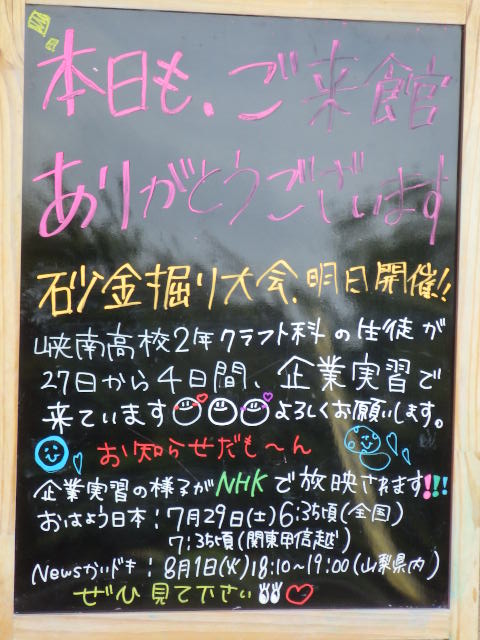 本日も、ご来館
ありがとうございます
砂金掘り大会、明日開催!!
峡南高校2年クラフト科の生徒が
27日から4日間、企業実習で
来ています よろしくお願いします。
お知らせだも〜ん
企業実習の様子がNHKで放映されます!!!
おはよう日本:7月29日(土)6:35頃(全国)
7:35頃(関東甲信越)
Newsかいドキ:8月1日(火)18:10~19:00(山梨県内)
ぜひ見て下さい